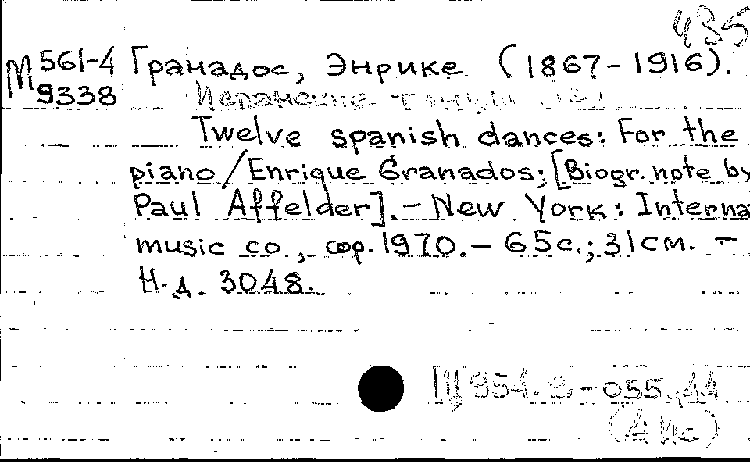 435
М 561-4 Гранадос, Энрике (1867-1916).
9338 Испанские танцы
Twelve spanish dances: For the
piano/Enrique Granados; [Biogr. note by
Paul Affelder]. - New York: Interna
music co., cop. 1970. - 65 с.; 31 см. -
Н.д. 3048.
Щ 954.2-055.44